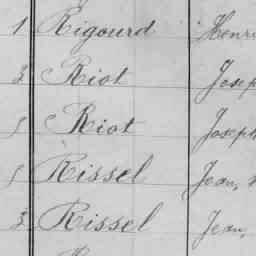 1 Rigourd Henri
3 Riot Josep
5 Riot Joseph
5 Rissel Jean,
3 Rissel Jean,